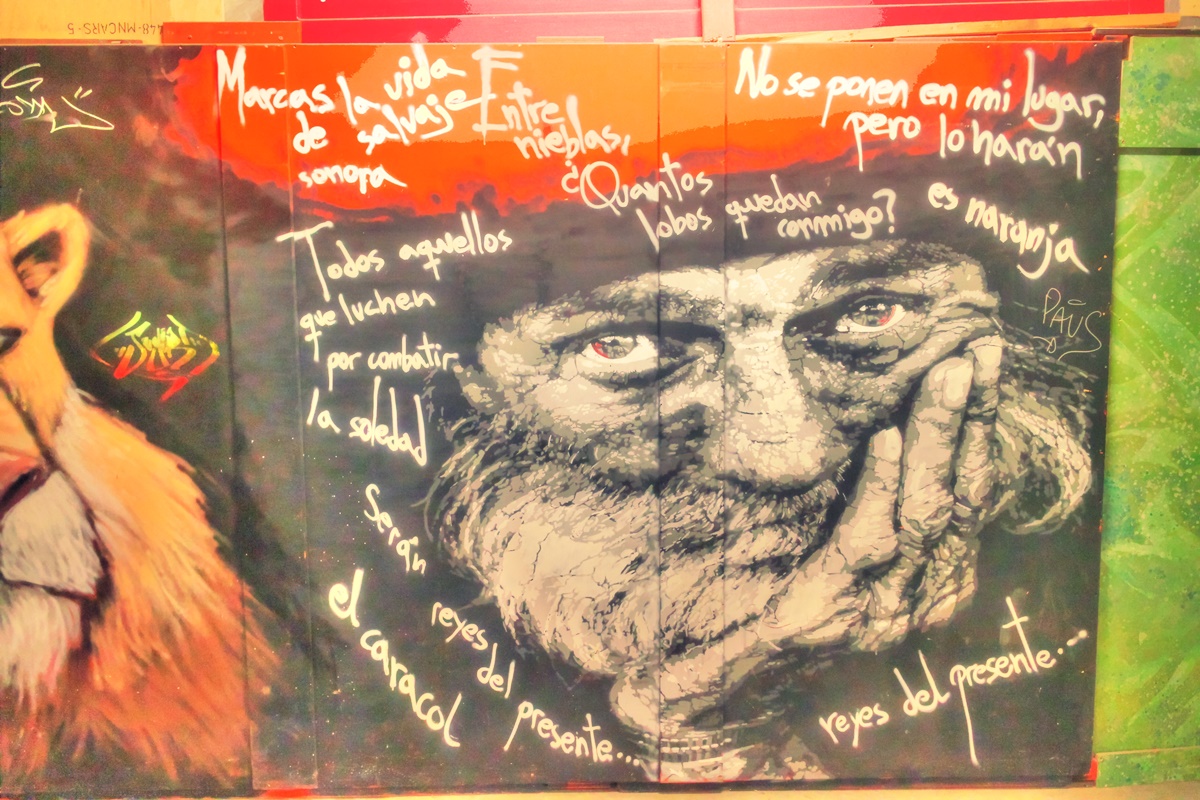 448-MNCARS-5
Marcas la vida
de salvaje
sonora
Entre
nieblas,
¿Quantos
lobos quedan
conmigo?
No se ponen en mi lugar,
pero lo harán
es naranja
PAUS
Todos aquellos
que luchen
por combatir
la soledad
Serán
reyes del presente...
el caracol
reyes del presente...